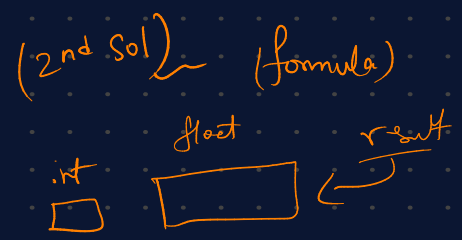 (2nd Sol) (formula)
float
result
int